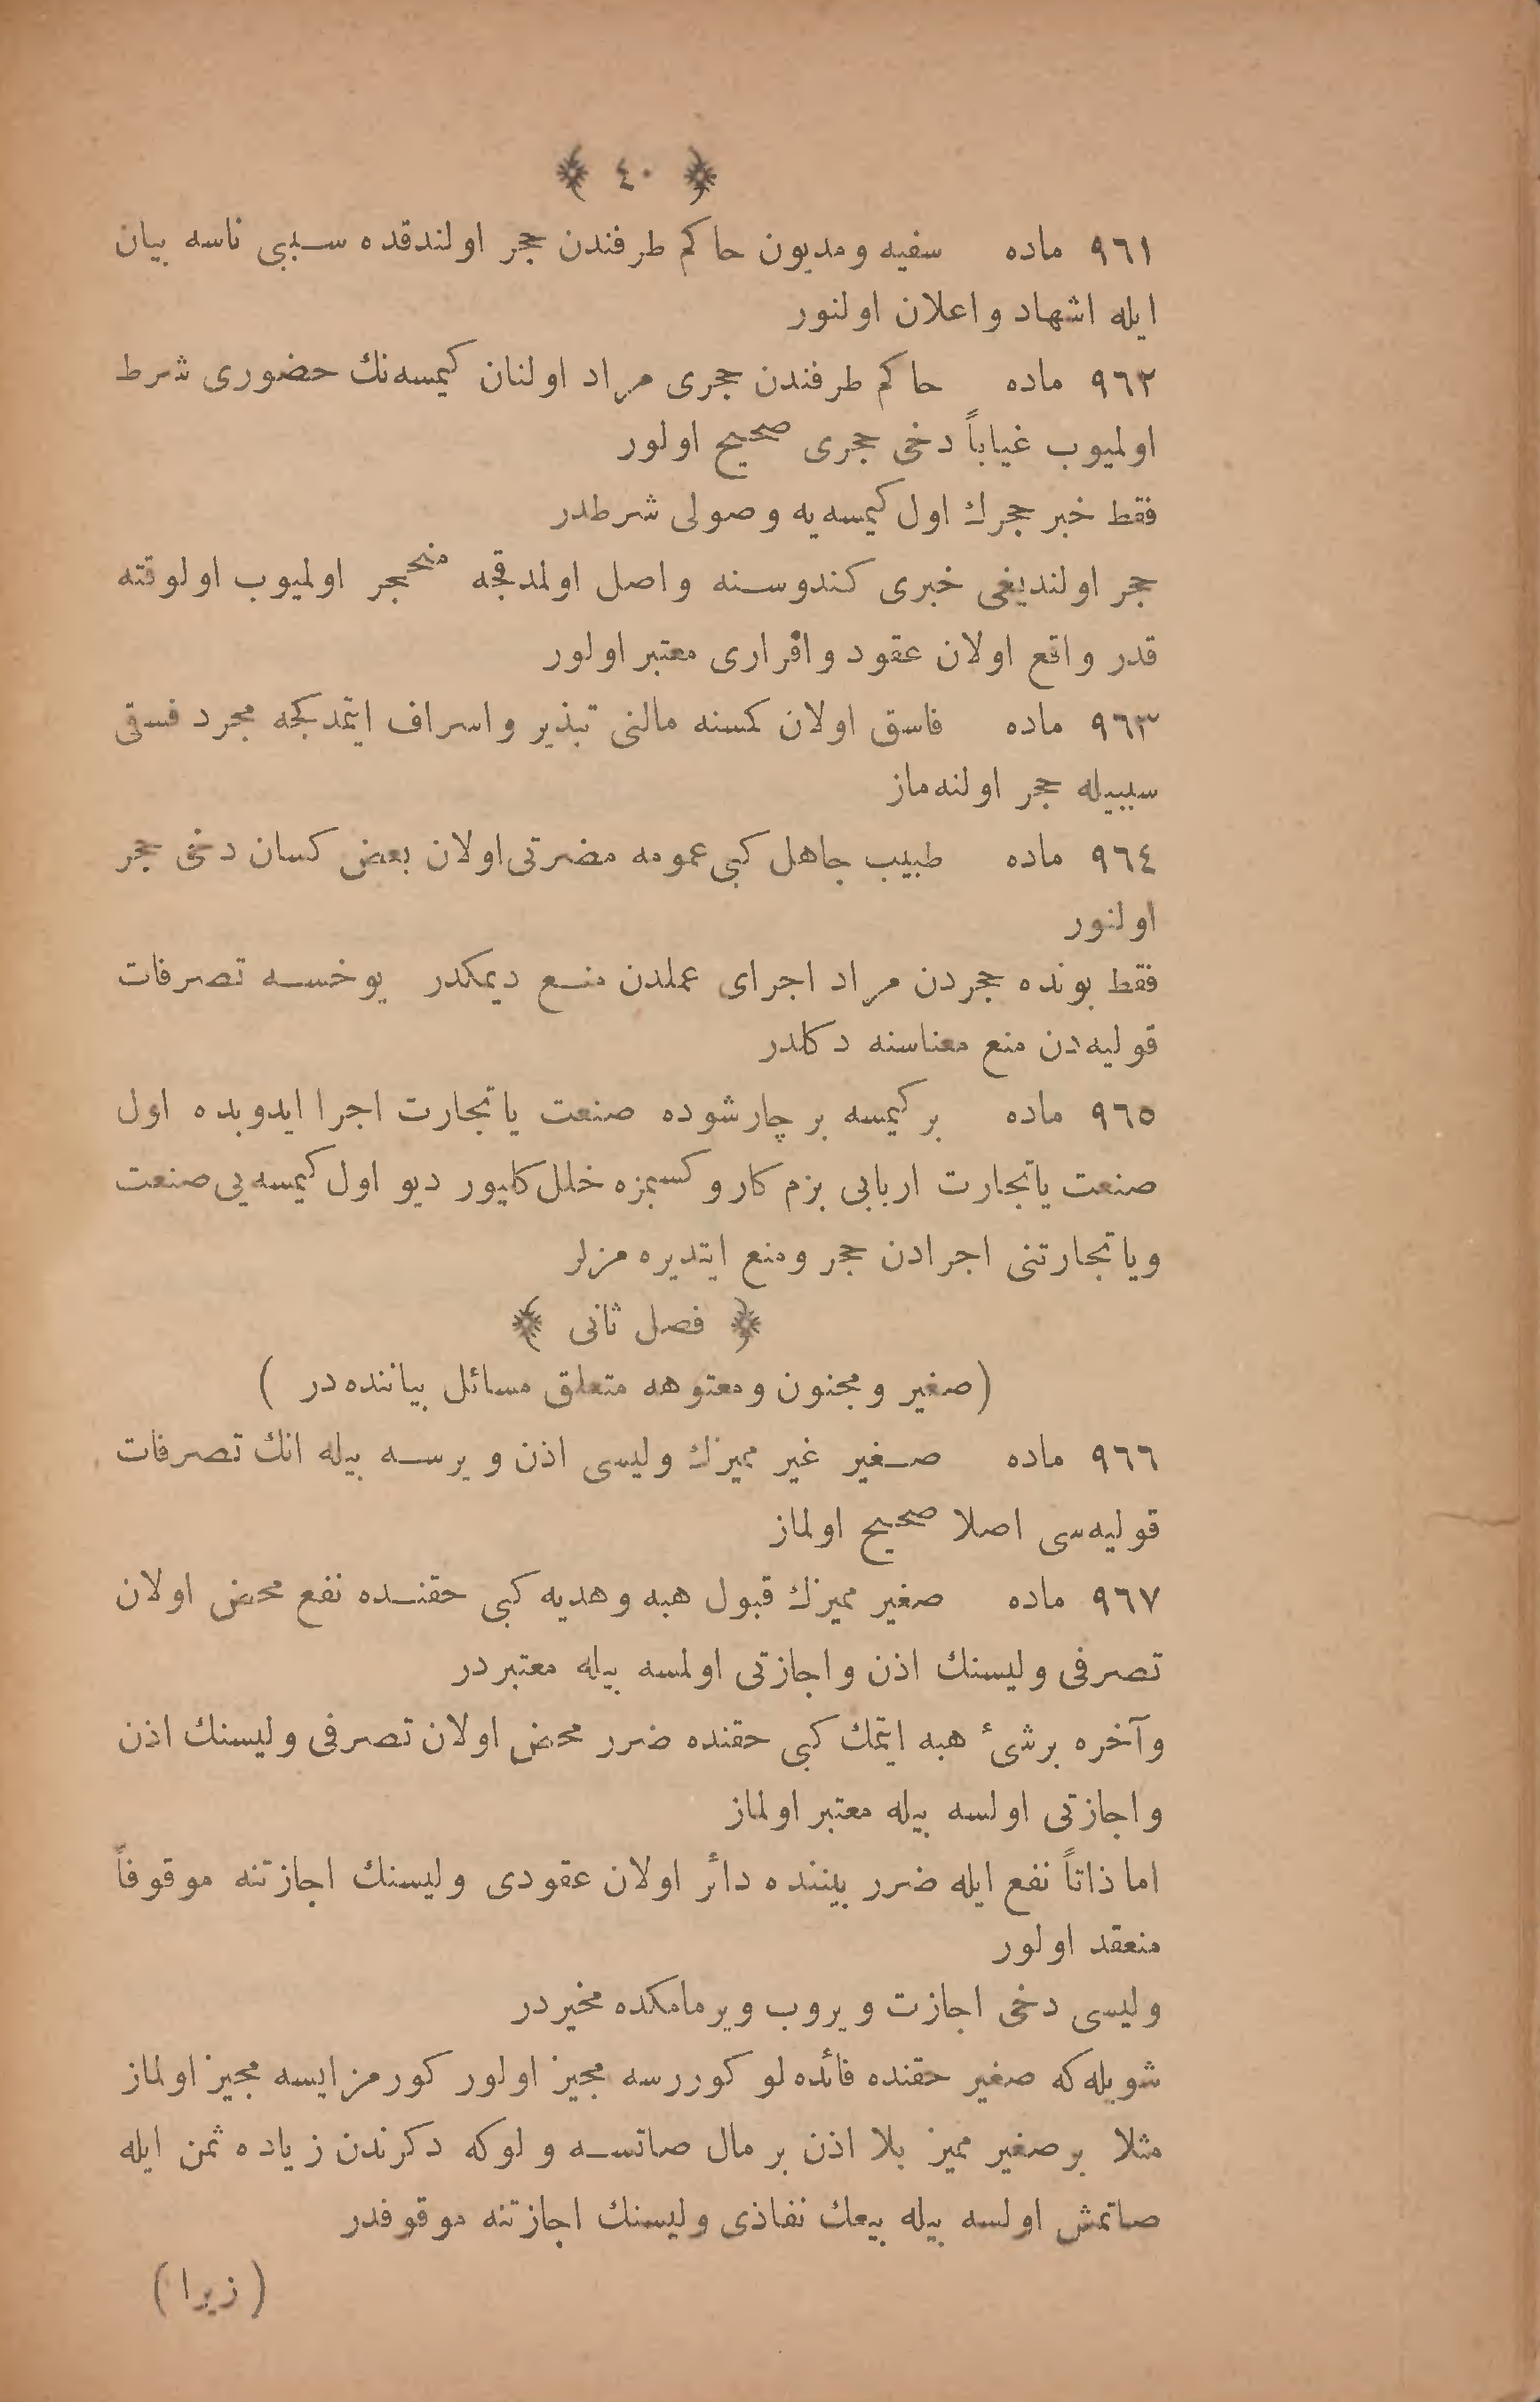 ﴿ ٤٠ ﴾
٩٦١ ماده سفیه ومدیون حاکم طرفندن حجر اولندقده سببی ناسه بیان
ایله اشهاد واعلان اولنور
٩٦٢ ماده حاکم طرفندن حجری مراد اولنان کیمسه‌نك حضوری شرط
اولمیوب غیاباً دخی حجری صحیح اولور
فقط خبر حجرك اول کیمسه‌یه وصولی شرطدر
حجر اولندیغی خبری کندوسنه واصل اولمدقجه منحجر اولمیوب اولوقته
قدر واقع اولان عقود واقراری معتبر اولور
٩٦٣ ماده فاسق اولان کمسنه مالنی تبذیر واسراف ایتمدکجه مجرد فسقی
سببیله حجر اولنه‌ماز
٩٦٤ ماده طبیب جاهل کبی عمومه مضرتی اولان بعض کسان دخی حجر
اولنور
فقط بونده حجردن مراد اجرای عملدن منع دیمکدر یوخسه تصرفات
قولیه‌دن منع معناسنه دکلدر
٩٦٥ ماده بر کیمسه بر چارشوده صنعت یاتجارت اجرا ایدوبده اول
صنعت یاتجارت اربابی بزم کار وکسبمزه خلل کلیور دیو اول کیمسه‌یی صنعت
ویاتجارتنی اجرادن حجر ومنع ایتدیره مزلر
﴿ فصل ثانی ﴾
(صغیر ومجنون ومعتوهه متعلق مسائل بیاننده‌در )
٩٦٦ ماده صغیر غیر ممیزك ولیسی اذن ویرسه بیله انك تصرفات
قولیه‌سی اصلا صحیح اولماز
٩٦٧ ماده صغیر ممیزك قبول هبه وهدیه کبی حقنده نفع محض اولان
تصرفی ولیسنك اذن واجازتی اولمسه بیله معتبردر
وآخره برشیٔ هبه ایتمك کبی حقنده ضرر محض اولان تصرفی ولیسنك اذن
واجازتی اولسه بیله معتبر اولماز
اما ذاتاً نفع ایله ضرر بیننده دائر اولان عقودی ولیسنك اجازتنه موقوفاً
منعقد اولور
ولیسی دخی اجازت ویروب ویرمامکده مخیردر
شویله‌که صغیر حقنده فائده‌لو کوررسه مجیز اولور کورمزایسه مجیز اولماز
مثلا بر صغیر ممیز بلا اذن بر مال صاتسه ولوکه دکرندن زیاده ثمن ایله
صاتمش اولسه بیله بیعك نفاذی ولیسنك اجازتنه موقوفدر
( زیرا )